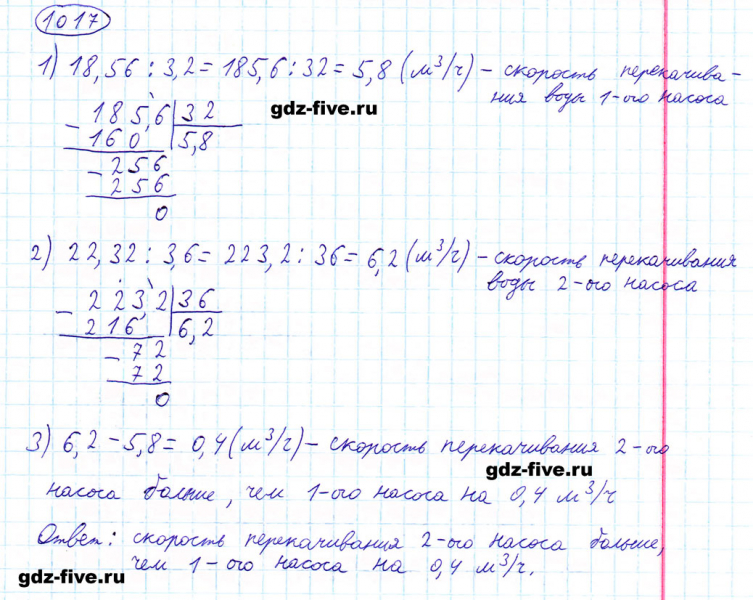 1017
1) 18,56 : 3,2 = 185,6 : 32 = 5,8 (м³/ч) – скорость перекачива-
ния воды 1-ого насоса
gdz-five.ru
– 185,6 | 32
160 | 5,8
– 256
256
0
2) 22,32 : 3,6 = 223,2 : 36 = 6,2 (м³/ч) – скорость перекачивания
воды 2-ого насоса
– 223,2 | 36
216 | 6,2
– 72
72
0
3) 6,2 – 5,8 = 0,4 (м³/ч) – скорость перекачивания 2-ого
gdz-five.ru
насоса больше, чем 1-ого насоса на 0,4 м³/ч
Ответ: скорость перекачивания 2-ого насоса больше,
чем 1-ого насоса на 0,4 м³/ч.
gdz-five.ru